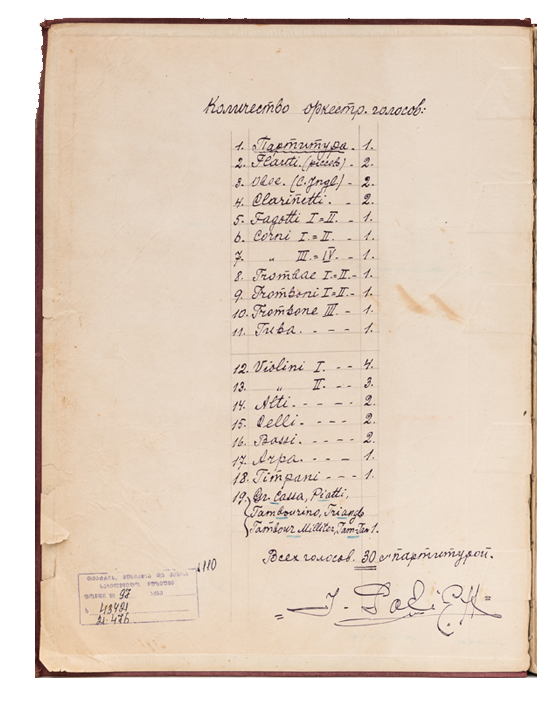 Количество оркестр. голосов:
1. Партитура - 1.
2. Flauti. (piccolo) - 2.
3. Oboe. (C. Ingl.) - 2.
4. Clarinetti. - 2.
5. Fagotti I=II. - 1.
6. Corni I.=II. - 1.
7. „ III.=IV. - 1.
8. Trombae I=II. - 1.
9. Tromboni I=II. - 1.
10. Trombone III. - 1.
11. Tuba. - - - - 1.
12. Violini I. - - - 4.
13. „ II. - - - 3.
14. Alti. - - - - 2.
15. Celli. - - - - 2.
16. Bassi. - - - - 2.
17. Arpa. - - - 1.
18. Timpani - - - 1.
19. Gr. Cassa, Piatti,
Tambourino, Triangl.
Tambour Militer, Tam-Tam 1.
Всех голосов. 30 с партитурой.
110
№ 97
43421
21-476